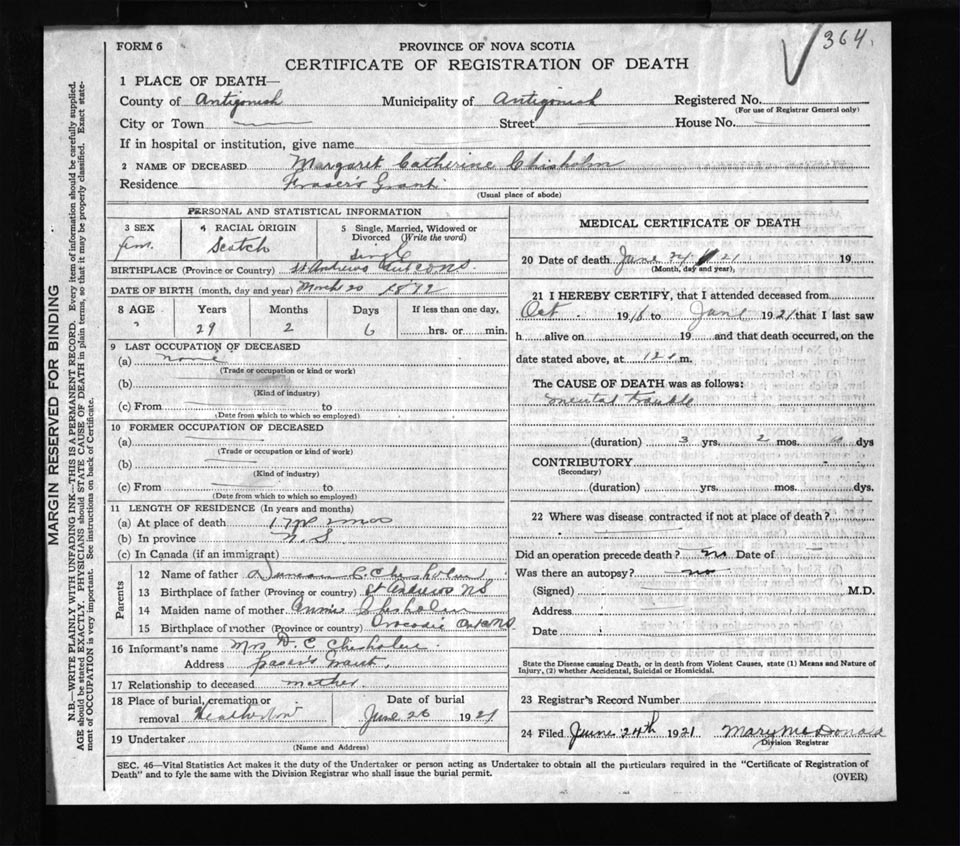 FORM 6
PROVINCE OF NOVA SCOTIA
364.
CERTIFICATE OF REGISTRATION OF DEATH
1 PLACE OF DEATH—
County of Antigonish Municipality of Antigonish Registered No.
(For use of Registrar General only)
City or Town Street House No.
If in hospital or institution, give name
2 NAME OF DECEASED Margaret Catherine Chisholm
Residence Fraser's Grant
(Usual place of abode)
PERSONAL AND STATISTICAL INFORMATION
3 SEX 4 RACIAL ORIGIN 5 Single, Married, Widowed or Divorced (Write the word)
fem. Scotch Single
BIRTHPLACE (Province or Country) St Andrews Ant Co N.S.
DATE OF BIRTH (month, day and year) March 20 1892
8 AGE Years Months Days If less than one day,
29 2 6 hrs. or min.
9 LAST OCCUPATION OF DECEASED
(a) none
(Trade or occupation or kind or work)
(b)
(Kind of industry)
(c) From to
(Date from which to which so employed)
10 FORMER OCCUPATION OF DECEASED
(a)
(Trade or occupation or kind of work)
(b)
(Kind of industry)
(c) From to
(Date from which to which so employed)
11 LENGTH OF RESIDENCE (In years and months)
(a) At place of death 1 yr mos
(b) In province N.S
(c) In Canada (if an immigrant)
Parents
12 Name of father Duncan C. Chisholm
13 Birthplace of father (Province or country) St Andrews NS
14 Maiden name of mother Annie Chisholm
15 Birthplace of mother (Province or country) NS
16 Informant's name Mrs D. C Chisholm
Address Frasers Grant
17 Relationship to deceased mother
18 Place of burial, cremation or removal Heatherton
Date of burial
June 26 1921
19 Undertaker
(Name and Address)
MEDICAL CERTIFICATE OF DEATH
20 Date of death June 24 21 19
(Month, day and year),
21 I HEREBY CERTIFY, that I attended deceased from
Oct 1918 to June 1921 that I last saw
h alive on 19 and that death occurred, on the
date stated above, at 12 m.
The CAUSE OF DEATH was as follows:
mental trouble
(duration) 3 yrs. 2 mos. dys
CONTRIBUTORY
(Secondary)
(duration) yrs. mos. dys.
22 Where was disease contracted if not at place of death?
Did an operation precede death? no Date of
Was there an autopsy? no
(Signed) M.D.
Address
Date
State the Disease causing Death, or in death from Violent Causes, state (1) Means and Nature of
Injury, (2) whether Accidental, Suicidal or Homicidal.
23 Registrar's Record Number
24 Filed June 24th 1921 Mary McDonald
Division Registrar
SEC. 46—Vital Statistics Act makes it the duty of the Undertaker or person acting as Undertaker to obtain all the particulars required in the "Certificate of Registration of
Death" and to fyle the same with the Division Registrar who shall issue the burial permit.
(OVER)
MARGIN RESERVED FOR BINDING
N.B.—WRITE PLAINLY WITH UNFADING INK—THIS IS A PERMANENT RECORD. Every item of information should be carefully supplied.
AGE should be stated EXACTLY. PHYSICIANS should STATE CAUSE OF DEATH in plain terms, so that it may be properly classified. Exact state-
ment of OCCUPATION is very important. See instructions on back of Certificate.